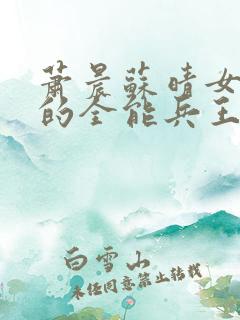 蕭晨蘇晴女
的全能兵王
白雪山
未經同意禁止轉載